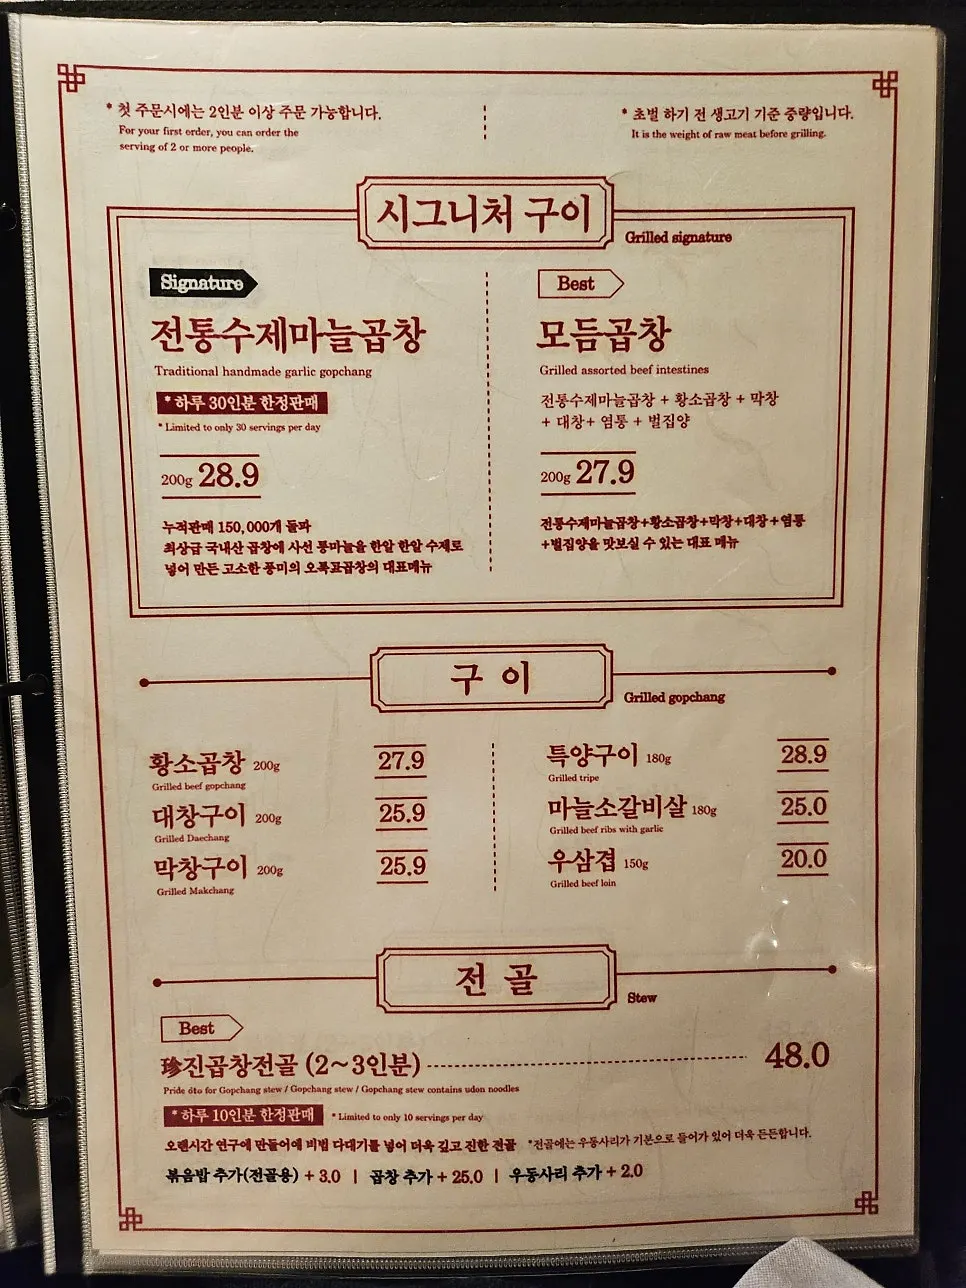 * 첫 주문시에는 2인분 이상 주문 가능합니다.
For your first order, you can order the
serving of 2 or more people.
* 초벌 하기 전 생고기 기준 중량입니다.
It is the weight of raw meat before grilling.
시그니처 구이
Grilled signature
Signature
전통수제마늘곱창
Traditional handmade garlic gopchang
* 하루 30인분 한정판매
* Limited to only 30 servings per day
200g 28.9
누적판매 150,000개 돌파
최상급 국내산 곱창에 사선 통마늘을 한알 한알 수제로
넣어 만든 고소한 풍미의 오록표곱창의 대표메뉴
Best
모듬곱창
Grilled assorted beef intestines
전통수제마늘곱창 + 황소곱창 + 막창
+ 대창+ 염통 + 벌집양
200g 27.9
전통수제마늘곱창+황소곱창+막창+대창+염통
+벌집양을 맛보실 수 있는 대표 메뉴
구 이
Grilled gopchang
황소곱창 200g 27.9
Grilled beef gopchang
대창구이 200g 25.9
Grilled Daechang
막창구이 200g 25.9
Grilled Makchang
특양구이 180g 28.9
Grilled tripe
마늘소갈비살 180g 25.0
Grilled beef ribs with garlic
우삼겹 150g 20.0
Grilled beef loin
전 골
Stew
Best
珍진곱창전골 (2~3인분) 48.0
Pride dto for Gopchang stew / Gopchang stew / Gopchang stew contains udon noodles
* 하루 10인분 한정판매 * Limited to only 10 servings per day
오랜시간 연구에 만들어에 비법 다대기를 넣어 더욱 깊고 진한 전골 *전골에는 우동사리가 기본으로 들어가 있어 더욱 든든합니다.
볶음밥 추가(전골용) + 3.0 | 곱창 추가 + 25.0 | 우동사리 추가 + 2.0